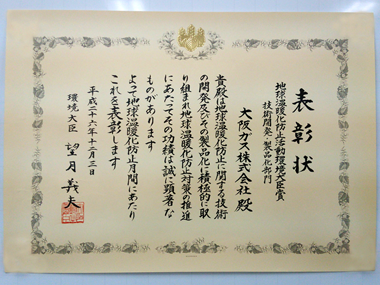 表彰状
地球温暖化防止活動環境大臣賞
技術開発・製品化部門
大阪ガス株式会社 殿
貴殿は地球温暖化防止に関する技術
の開発及びその製品化に積極的に取
り組まれ地球温暖化防止対策の推進
にあたってその功績は誠に顕著な
ものがあります
よって地球温暖化防止月間にあたり
これを表彰します
平成二十六年十二月二日
環境大臣 望月義夫